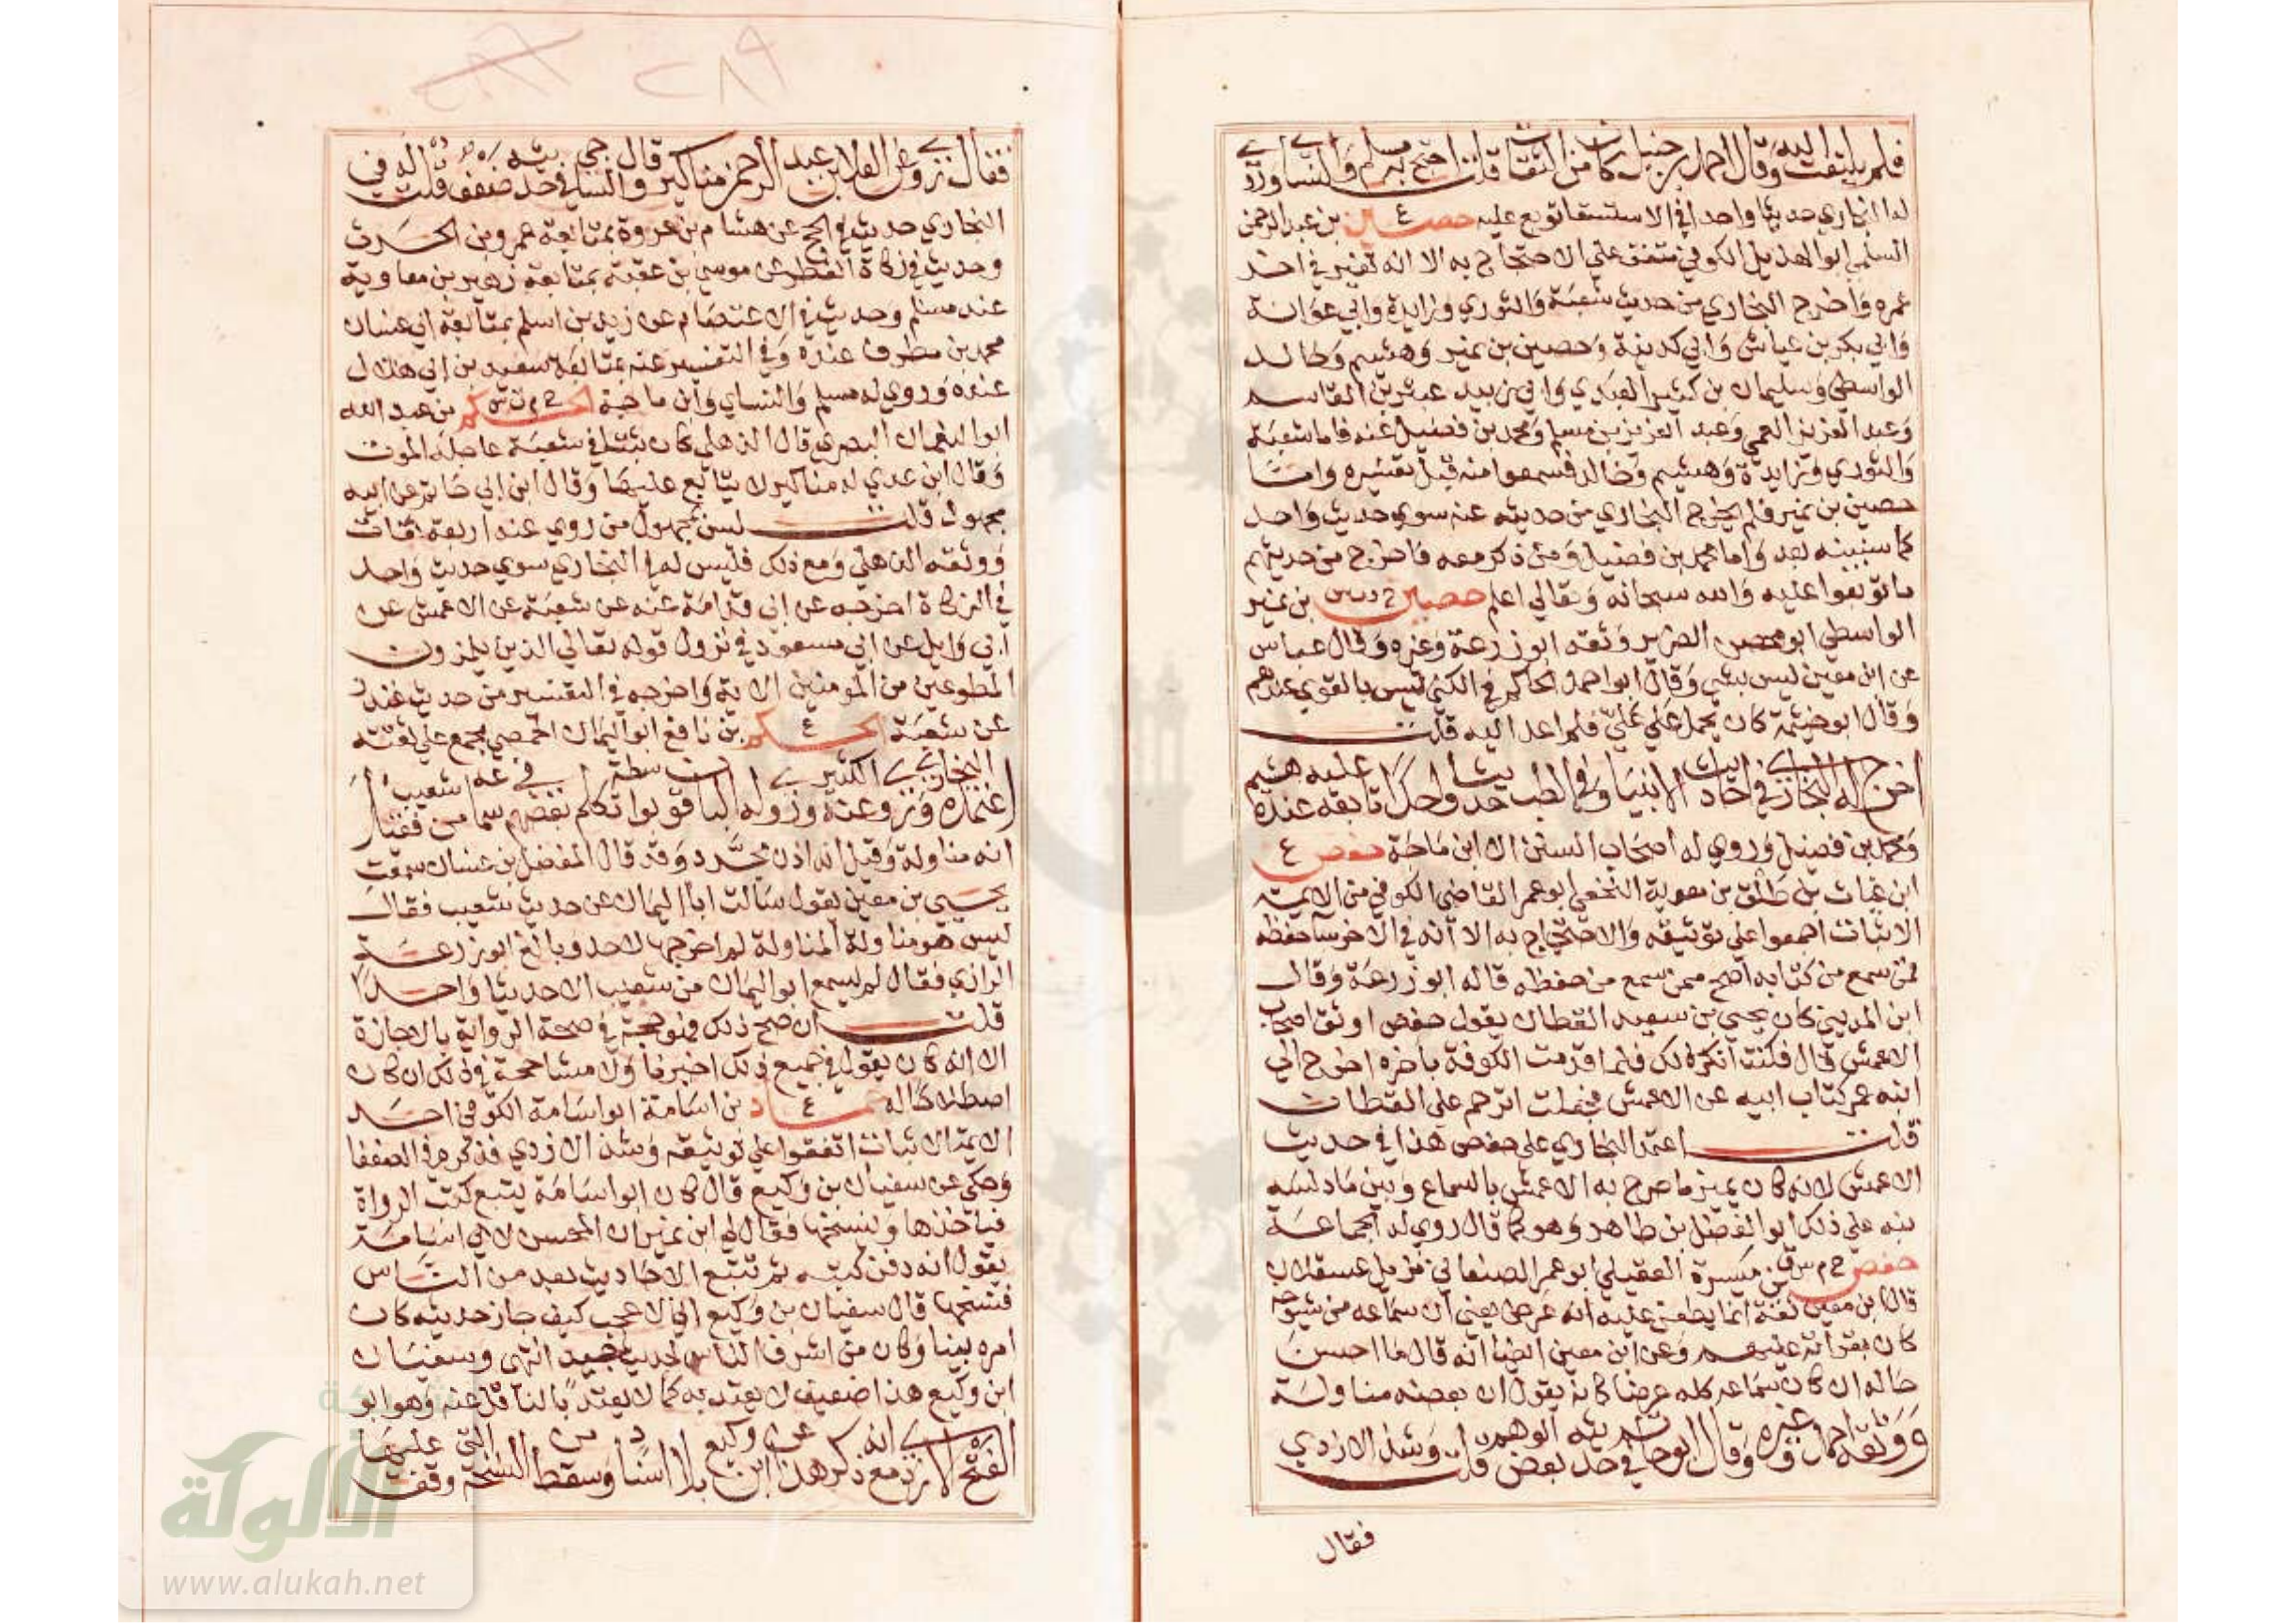 فلم يلتفت اليه وقال احمد بن حنبل كان من الثقات قلت احتج به مسلم والنساي وروي
له البخاري حديثا واحدا في الاستسقا توبع عليه حصين ع بن عبد الرحمن
السلمي ابو الهذيل الكوفي متفق علي الاحتجاج به الا انه تغير في اخر
عمره واخرج البخاري من حديث شعبة والثوري وزايدة وابي عوانة
وابي بكر بن عياش وابي كدينة وحصين بن نمير وهشيم وخالد
الواسطي وسليمان بن كثير العبدي وابي زبيد عبثر بن القاسم
وعبد العزيز العمي وعبد العزيز بن مسلم ومحمد بن فضيل عنه فاما شعبة
والثوري وزايدة وهشيم وخالد فسمعوا منه قبل تغيره واما
حصين بن نمير فلم يخرج البخاري من حديثه عنه سوي حديث واحد
كما سنبينه بعد واما محمد بن فضيل ومن ذكر معه فاخرج من حديثهم
ما توبعوا عليه والله سبحانه وتعالي اعلم حصين خ د ت س بن نمير
الواسطي ابو محصن الضرير وثقه ابو زرعة وغيره وقال عباس
عن ابن معين ليس بشي وقال ابو احمد الحاكم في الكني ليس بالقوي عندهم
وقال ابو خيثمة كان يحمل علي علي فلم اعد اليه قلت
اخرج له البخاري في احاديث الانبيا وفي الطب حديثا واحدا تابعه عنده عليه هشيم
ومحمد بن فضيل وروي له اصحاب السنن الا ابن ماجة حفص ع
ابن غياث بن طلق بن معوية النخعي ابو عمر القاضي الكوفي من الايمة
الاثبات اجمعوا علي توثيقه والاحتجاج به الا انه في الاخر سا حفظه
فمن سمع من كتابه اصح ممن سمع من حفظه قاله ابو زرعة وقال
ابن المديني كان يحيي بن سعيد القطان يقول حفص اوثق اصحاب
الاعمش قال فكنت انكر ذلك فلما قدمت الكوفة باخره اخرج الي
ابنه عمر كتاب ابيه عن الاعمش فجعلت اترحم علي القطان
قلت اعتمد البخاري علي حفص هذا في حديث
الاعمش لانه كان يميز ما صرح به الاعمش بالسماع وبين ما دلسه
نبه علي ذلك ابو الفضل بن طاهر وهو كما قال روي له الجماعة
حفص خ م س ق بن ميسرة العقيلي ابو عمر الصنعاني نزيل عسقلان
قال ابن معين ثقة انما يطعن عليه انه عرض يعني ان سماعه من شيوخه
كان بقراته عليهم وعن ابن معين ايضا انه قال ما احسن
حاله ان كان سماعه كله عرضا كانه يقول ان بعضه مناولة
ووثقه احمد وغيره وقال ابو حاتم في حديثه بعض الوهم قلت وشذ الازدي
فقال
فقال روي عن العلا بن عبد الرحمن مناكير وقال الساجي في حديثه ضعف قلت له في
البخاري حديث في الحج عن هشام بن عروة بمتابعة عمرو بن الحرث
وحديث في زكاة الفطر عن موسي بن عقبة بمتابعة زهير بن معاوية
عند مسلم وحديث في الاعتصام عن زيد بن اسلم بمتابعة ابي غسان
محمد بن مطرف عنده وفي التفسير عنه بمتابعة سعيد بن ابي هلال
عنده وروي له مسلم والنساي وابن ماجة الحكم خ م ت س بن عبد الله
ابو النعمان البصري قال الذهلي كان ثبتا في شعبة عاجله الموت
وقال ابن عدي له مناكير لا يتابع عليها وقال ابن ابي حاتم عن ابيه
مجهول قلت ليس بمجهول من روي عنه اربعة ثقات
ووثقه الذهلي ومع ذلك فليس له في البخاري سوي حديث واحد
في الزكاة اخرجه عن ابي قدامة عنه عن شعبة عن الاعمش عن
ابي وايل عن ابي مسعود في نزول قوله تعالي الذين يلمزون
المطوعين من المومنين الاية واخرجه في التفسير من حديث غندر
عن شعبة الحكم ع بن نافع ابو اليمان الحمصي مجمع علي ثقته
اعتمده البخاري وروي عنه الكثير وروي له الباقون بواسطة تكلم بعضهم في سماعه من شعيب فقيل
انه مناولة وقيل انه اذن مجرد وقد قال المفضل بن غسان سمعت
يحيي بن معين يقول سالت ابا اليمان عن حديث شعيب فقال
ليس هو مناولة المناولة لم اخرجها لاحد وبالغ ابو زرعة
الرازي فقال لم يسمع ابو اليمان من شعيب الا حديثا واحدا
قلت ان صح ذلك فهو حجة في صحة الرواية بالاجازة
الا انه كان يقول في جميع ذلك اخبرنا ولا مشاححة في ذلك ان كان
اصطلاحا له حماد ع بن اسامة ابو اسامة الكوفي احد
الايمة الاثبات اتفقوا علي توثيقه وشذ الازدي فذكره في الضعفا
وحكي عن سفيان بن وكيع قال كان ابو اسامة يتتبع كتب الرواة
فياخذها وينسخها فقال لي ابن نمير ان المحسن لابي اسامة
يقول انه دفن كتبه ثم تتبع الاحاديث بعد من الناس
فنسخها قال سفيان بن وكيع اني لاعجب كيف جاز حديثه كان
امره بينا وكان من اسرق الناس لحديث جيد انتهي وسفيان
ابن وكيع هذا ضعيف لا يعتد به كما لا يعتد بالناقل عنه وهو ابو
الفتح الازدي مع انه ذكر هذا عن ابن وكيع بلا اسناد وسقط من النسخة التي وقفت عليها